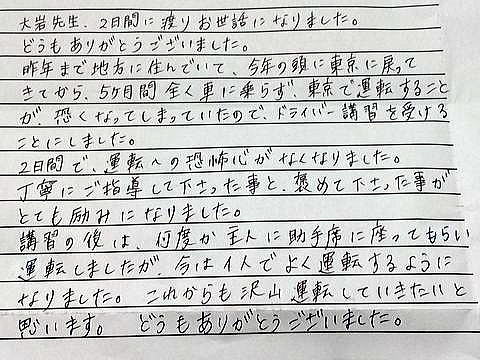 大岩先生、2日間に渡りお世話になりました。
どうもありがとうございました。
昨年まで地方に住んでいて、今年の頭に東京に戻って
きてから、5ヶ月間全く車に乗らず、東京で運転すること
が、恐くなってしまっていたので、ドライバー講習を受ける
ことにしました。
2日間で、運転への恐怖心がなくなりました。
丁寧にご指導して下さった事と、褒めて下さった事が
とても励みになりました。
講習の後は、何度か主人に助手席に座ってもらい
運転しましたが、今は1人でよく運転するように
なりました。 これからも沢山運転していきたいと
思います。 どうもありがとうございました。